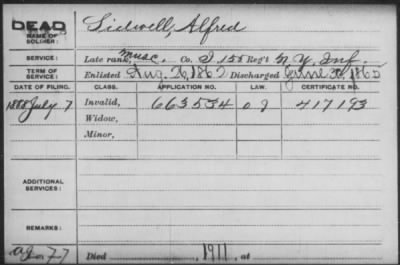 DEAD
NAME OF SOLDIER: Sidwell, Alfred
SERVICE: Late rank, Musc. Co. I, 155 Reg't N. Y. Inf.
TERM OF SERVICE: Enlisted Aug. 26, 1862 Discharged June 1865
DATE OF FILING. CLASS. APPLICATION NO. LAW. CERTIFICATE NO.
1888 July 7 Invalid, 663534 417193
Widow,
Minor,
ADDITIONAL SERVICES:
REMARKS:
Died 1911, at